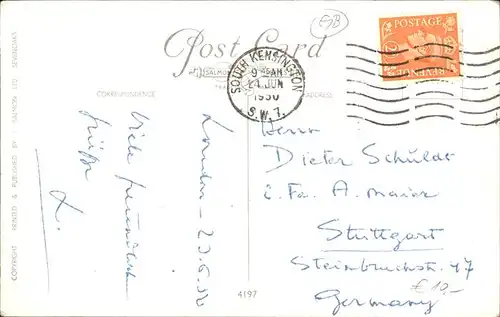 SB
Post Card
SALMON
CORRESPONDENCE
ADDRESS
SOUTH KENSINGTON
9 45 AM
24 JUN
1950
S.W.7.
POSTAGE
REVENUE
London - 23.6.50
Viele freundliche
Grüße
L.
Herrn
Dieter Schulde
c. Fa. A. Maier
Stuttgart
Steinbruchstr. 47
Germany
€ 10,-
4197
COPYRIGHT PRINTED & PUBLISHED BY J. SALMON LTD SEVENOAKS